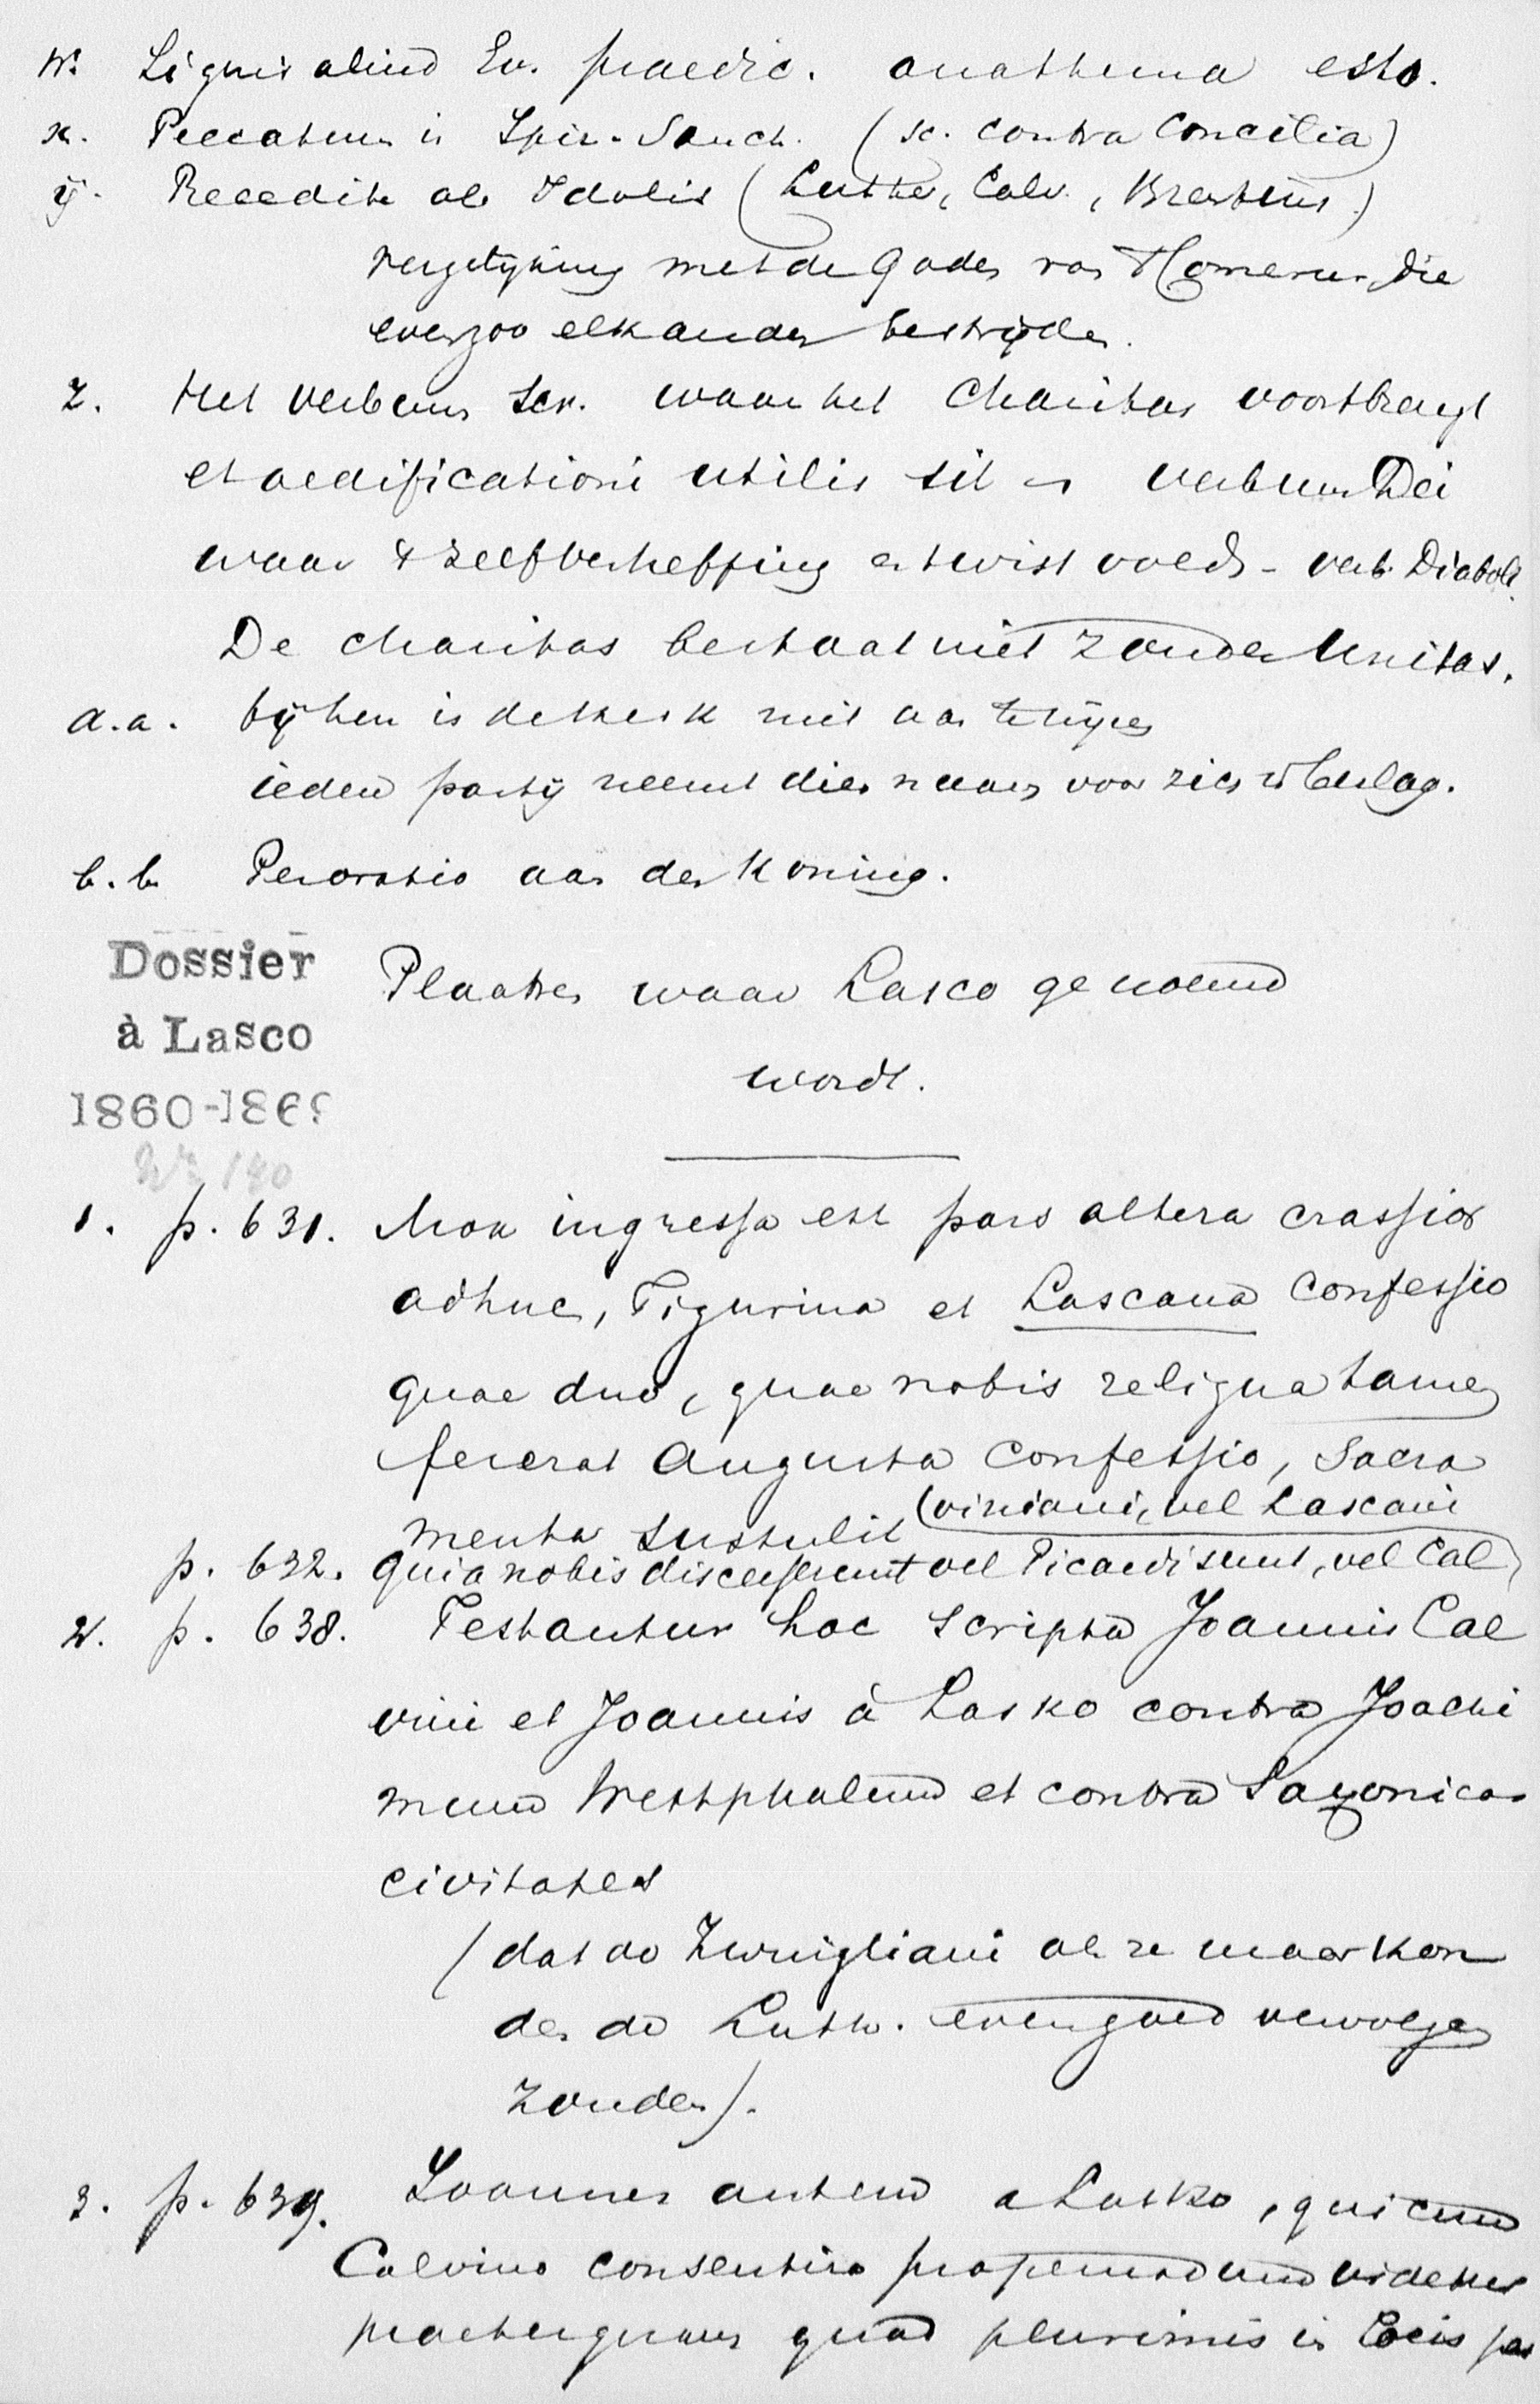 w. Siquis aliud Ev. praedic. anathema esto.
x. Peccatum in Spir. Sanct. (sc. contra Concilia)
ij. Recedite ab Idolis (Luther, Calv., Brentius)
vergelijking met de Goden van Homerus die
evenzoo elkander bestrijden.
z. Het verbum Scr. waar het Charitas voortbrengt
et aedificationi utilis sit is verbum Dei
waar & zelfverheffing en twist voedt - verb. Diaboli.
De charitas bestaat niet zonder Unitas.
a.a. bij hen is de kerk niet aan te wijzen
ieder partij neemt dien naam voor zich in beslag.
b.b. Peroratio aan den Koning.
Dossier
à Lasco
1860-1869
No 140
Plaatsen waar Lasco genoemd
wordt.
1. p. 631. Mox ingressa est pars altera crassior
adhuc, Tigurina et Lascana Confessio
quae duo, quae nobis reliqua tamen
fecerat Augusta Confessio, Sacra
menta sustulit (viniani, vel Lascani
p. 632. quia nobis discesserunt vel Picardi sunt, vel Cal
2. p. 638. Testantur hoc scripta Joannis Cal
vini et Joannis à Lasko contra Joachi
mum Westphalum et contra Saxonicas
civitates
(dat de Zwingliani als ze maar kon
den de Luth. evengoed vervolgen
zouden).
3. p. 639. Joannes autem a Lasko, qui cum
Calvino consentire propemodum videtur
praeterquam quod plurimis in locis pas